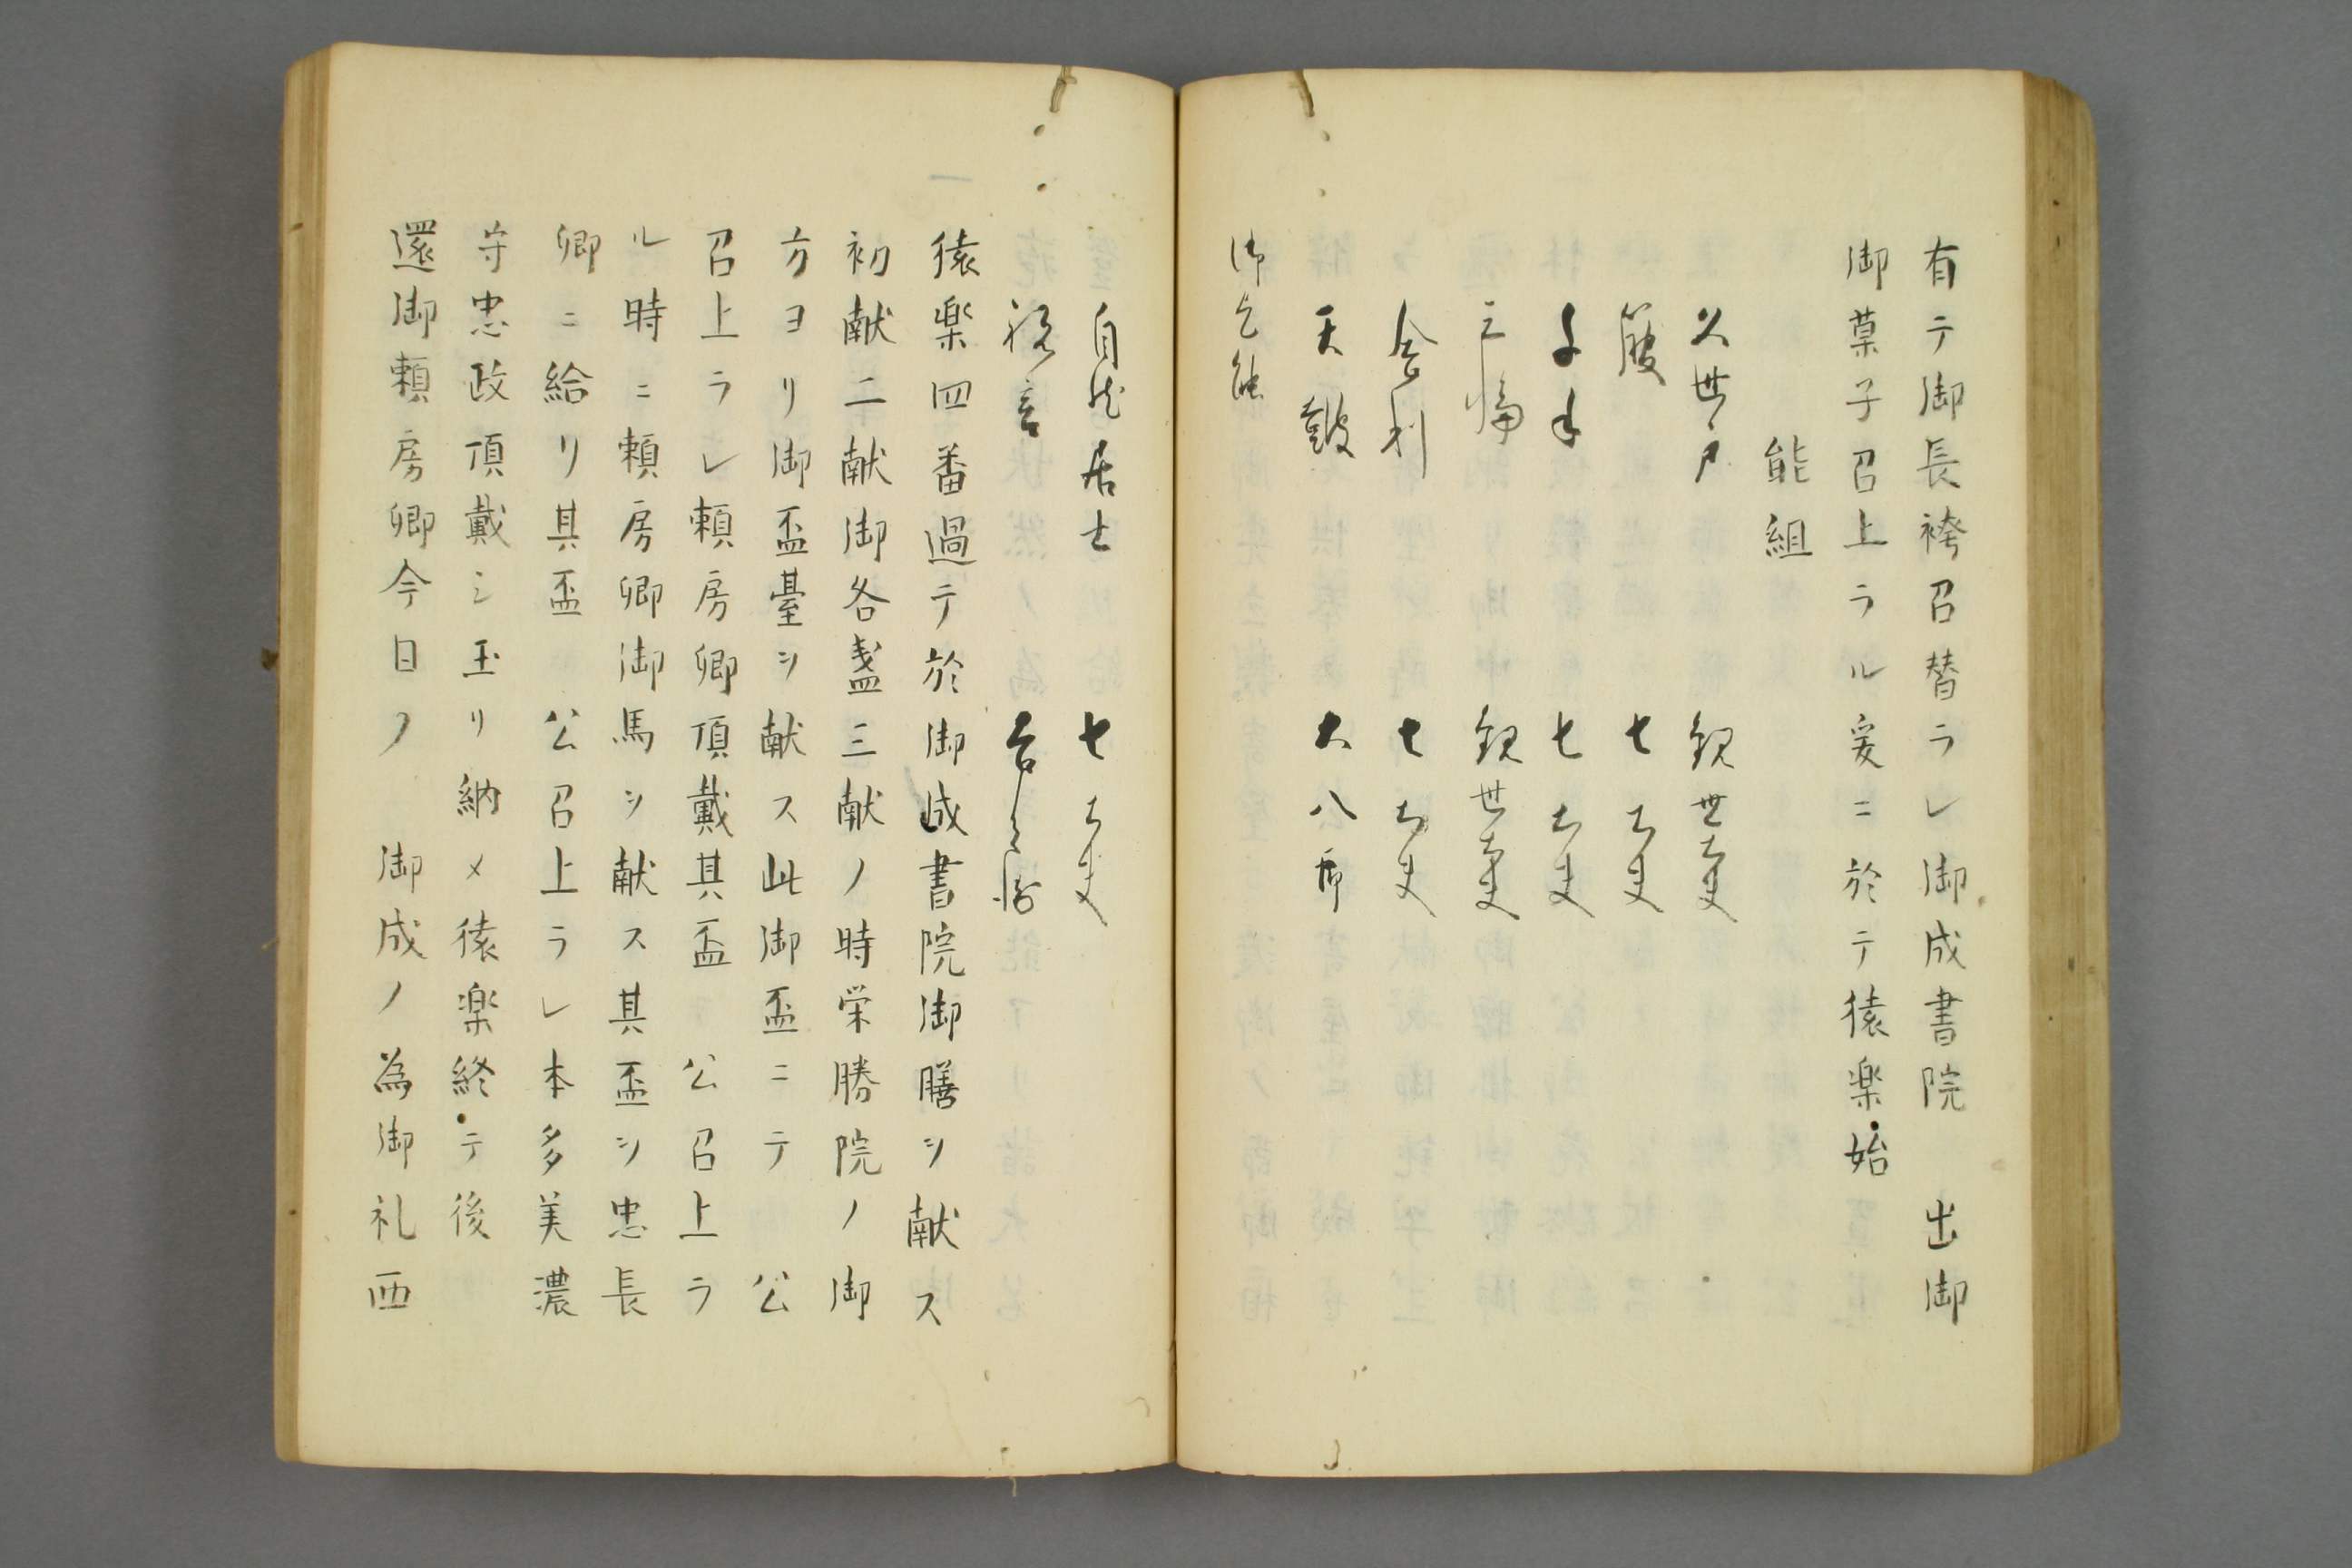 有テ御長袴召替ラレ御成書院　出御
御菓子召上ラル爰ニ於テ猿楽始
能組
久世戸　観世大夫
箙　七大夫
千手　七大夫
三輪　観世大夫
舎利　七大夫
天鼓　大八郎
御乞能
自然居士　七大夫
祝言
猿楽四番過テ於御成書院御膳ヲ献ス
初献二献御各盞三献ノ時栄勝院ノ御
方ヨリ御盃臺ヲ献ス此御盃ニテ　公
召上ラレ頼房卿頂戴其盃　公召上ラ
ル時ニ頼房卿御馬ヲ献ス其盃ヲ忠長
卿ニ給リ其盃　公召上ラレ本多美濃
守忠政頂戴シ玉リ納メ猿楽終テ後
還御頼房卿今日ノ　御成ノ為御礼西